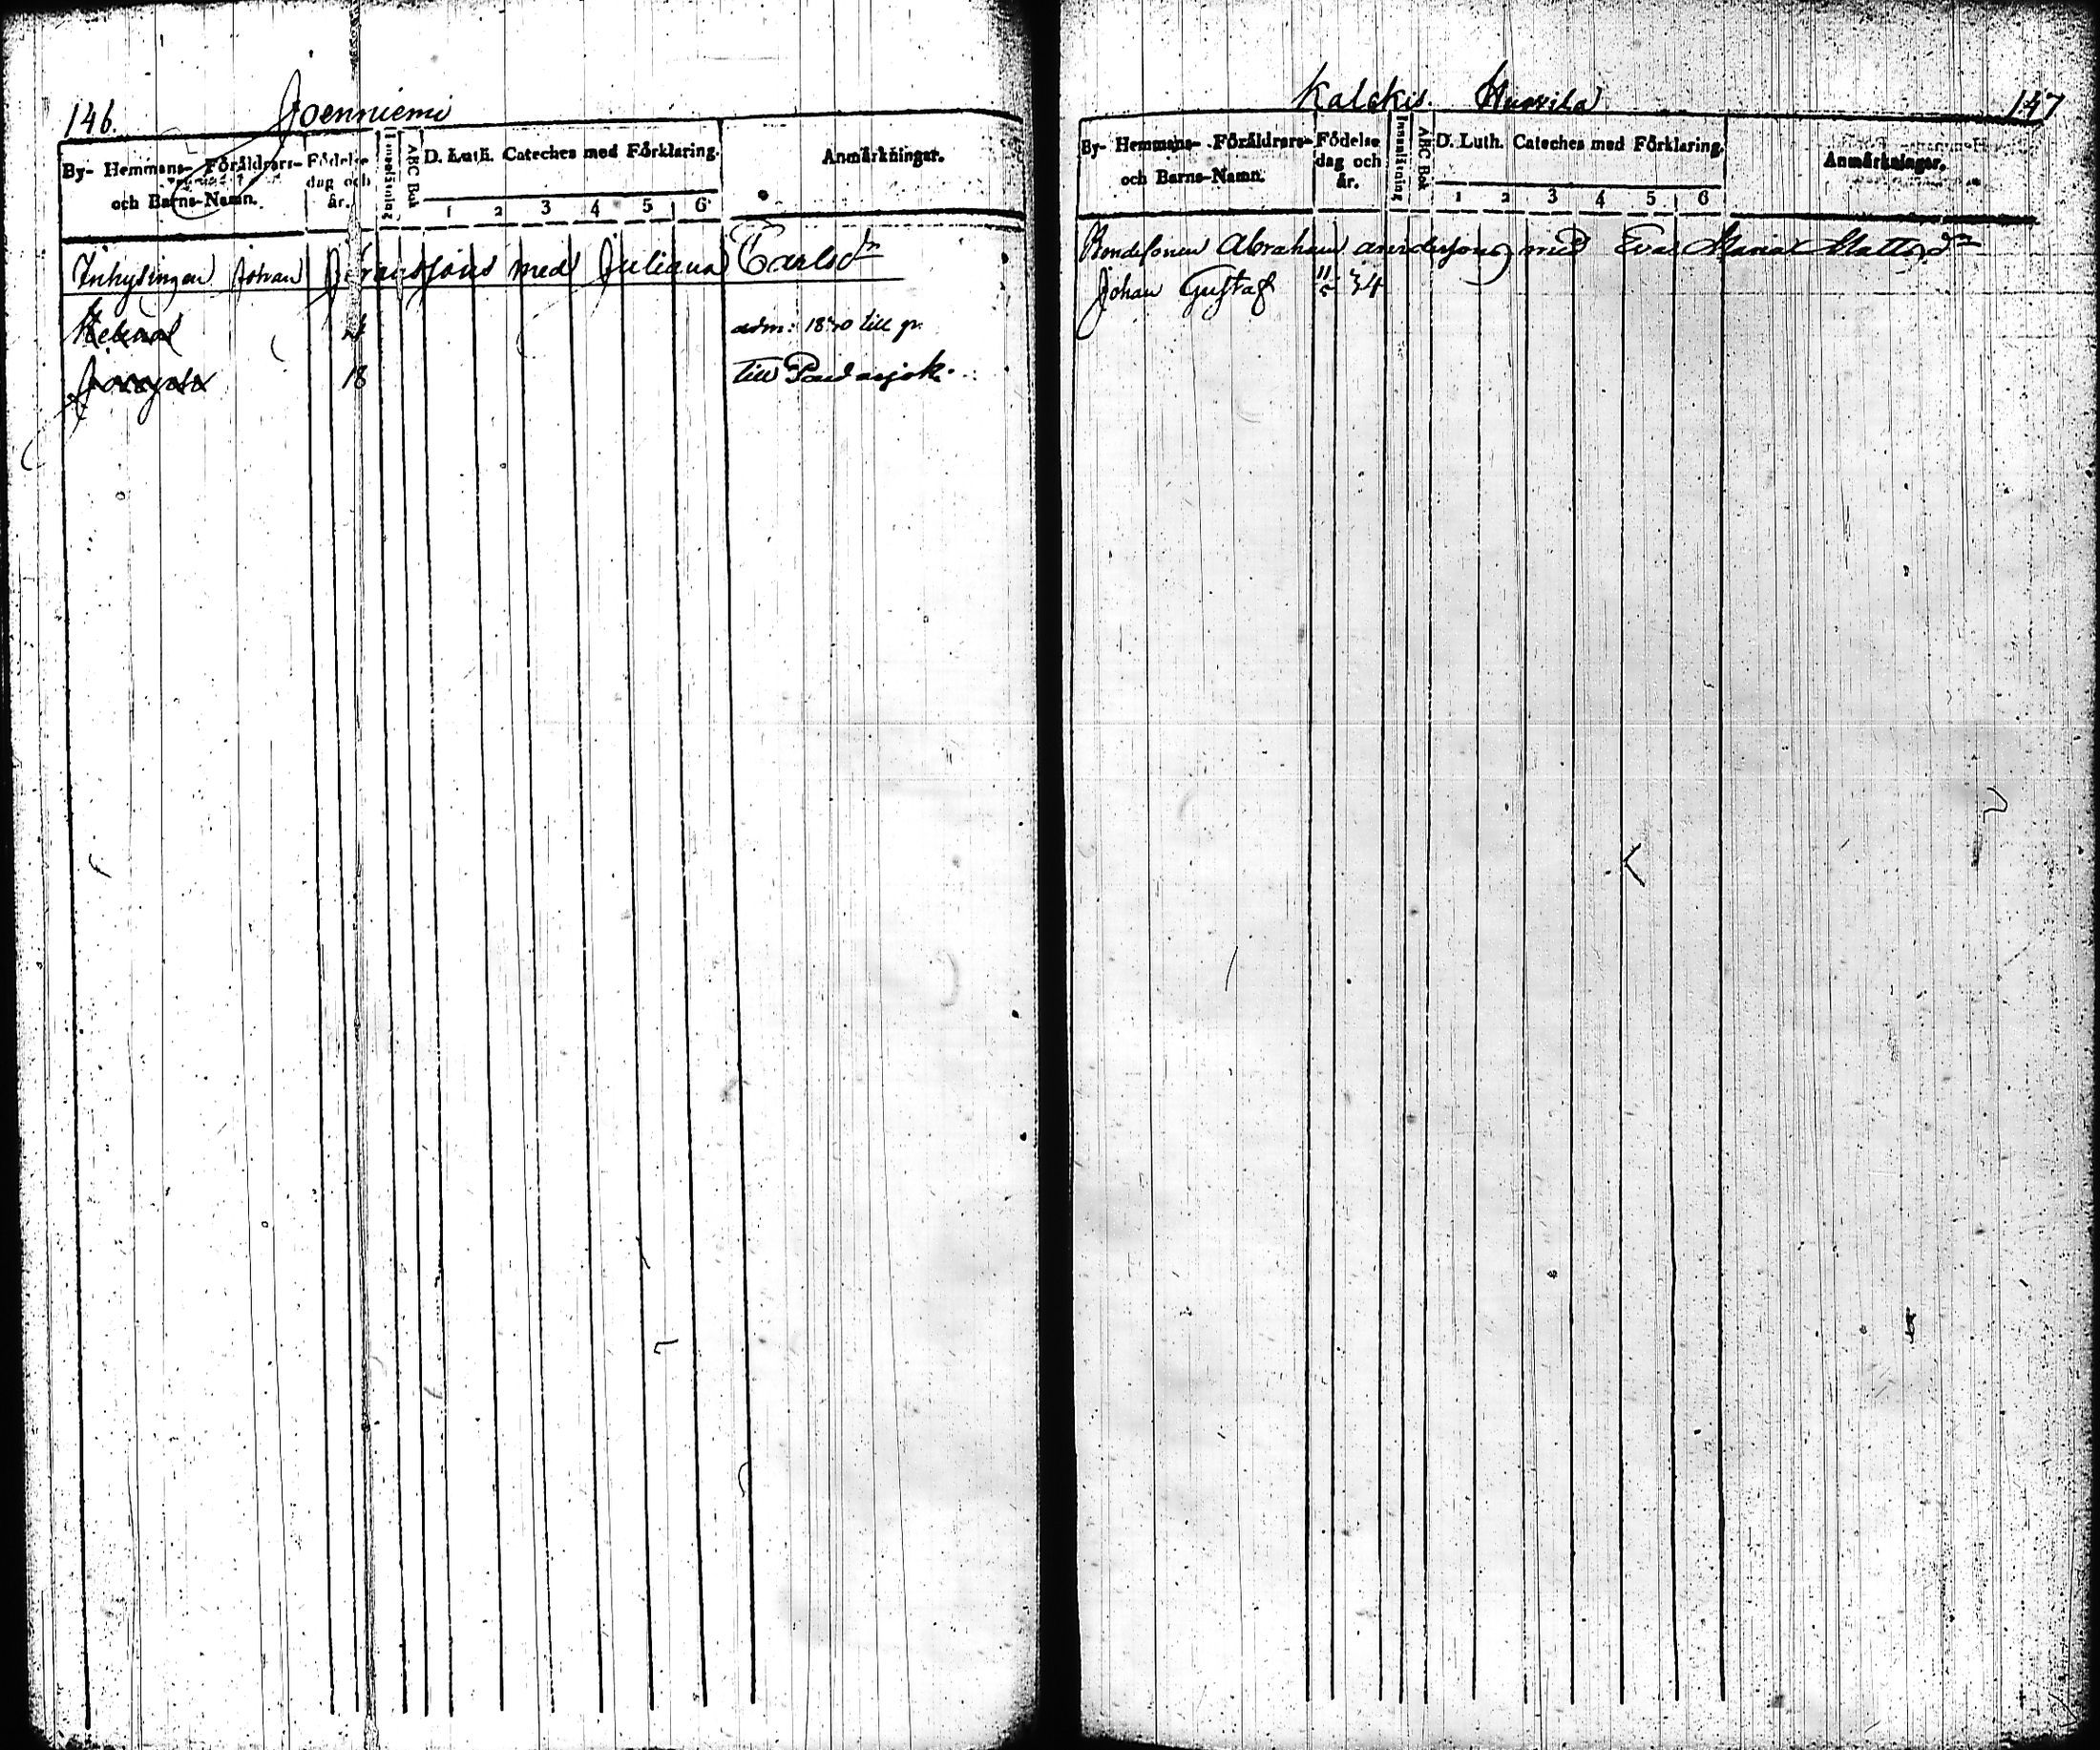 146.
Joenniemi
By- Hemmans- Föräldrars-
och Barns-Namn.
Födelse
dag och
år.
Innanläsning
ABC Bok
D. Luth. Cateches med Förklaring.
1 2 3 4 5 6
Anmärkningar.
Inhysingen Johan Johanssons med Juliana Carlsdr
Helena
adm: 1840 till
18 till Padasjok.
Kalckis. Huovila
147
By- Hemmans- Föräldrars-
och Barns-Namn.
Födelse
dag och
år.
Innanläsning
ABC Bok
D. Luth. Cateches med Förklaring.
1 2 3 4 5 6
Anmärkningar.
Bondesonen Abraham Anderssons med Eva Maria Mattsdr
Johan Gustaf 11/5 34